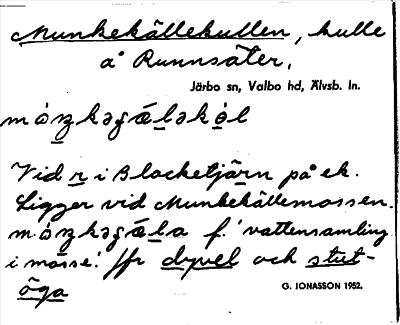 Munkekällekullen, kulle
å Runnsäter.
Järbo sn, Valbo hd, Älvsb. ln.
Vid r i Blacketjärn på ek.
Ligger vid Munkekällemossen.
f. 'vattensamling
i mosse'. Jfr dyvel och stut-
öga
G. JONASSON 1952.